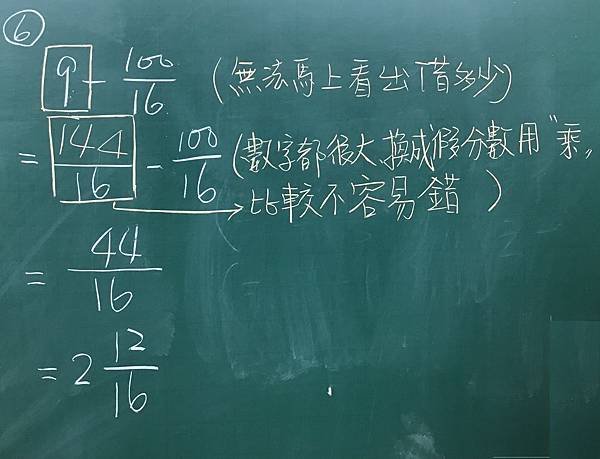 ⑥
9 - 100/16 (無法馬上看出借多少)
= 144/16 - 100/16 (數字都很大,換成假分數用"乘"
→ 比較不容易錯)
= 44/16
= 2 12/16